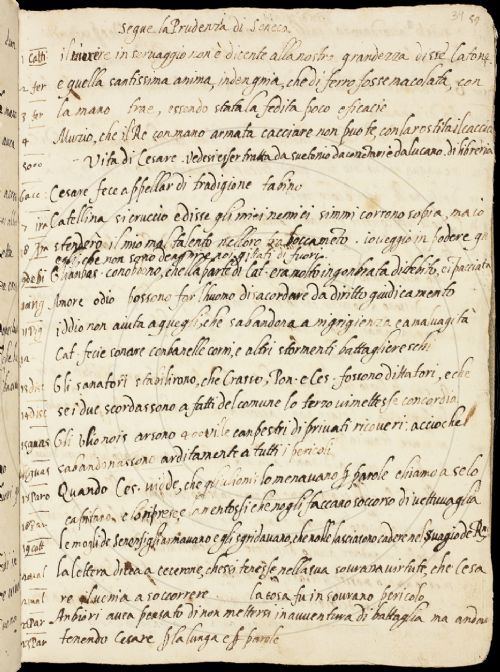 39 59
Segue la Prudenza di Seneca.
1 Catti il morire in servaggio non è dicente alla nostra grandezza disse Catone
2 fer e quella santissima anima, indengnia, che di ferro fosse macolata, con
3 fer la mano trae, essendo stata la fedita poco efficacie
4 Muzio, che il Re con mano armata cacciare non puote, con larostita il caccia
5 Vita di Cesare. vedesi esser tratta da suetonio da comentari e da lucano. di libreria
6 acc. Cesare fece appellar di tradigione
7 ira Catellina si cruccio e disse gli miei nemici simmi corrono sopra, ma io
8 Ira stenderò il mio mal talento nelloro . io veggio in podere
egli, che non sono degni gittati di fuori
conobono, che la parte di Cat. era molto ingombrata di debito,
Amore odio possono far l'huomo discordare da diritto giudicamento
iddio non aiuta a quegli, che sabandona a nigrigienza e a malvagità
Cat. fecie sonare campanelle corni, e altri stormenti battaglereschi
13 Gli sanatori stabilirono, che Crasso, Pon. e Ces. fossono dittatori, e che
14 disc se i due scordassono a fatti del comune lo terzo vi mettesse concordia
15 guas Gli arsono 400 ville campestri di privati ricoveri: accioche
16 guas sabandonassono arditamente a tutti i pericoli
17 Paro Quando Ces. vidde, che lo menavano p parole chiamo a se lo
18 Par capitano, e che nogli faccano soccorso di vettuvaglia
19 catt le mogli de armavano e gli sgridavano, che nolle lasciasono cadere nel servagio de Ro.
20 val la lettera dicea a cecerone, che si tenesse nella sua sovrana virtute, che Cesa
21 val re il venia a soccorere . la cosa fu in sovrano pericolo
22 Par Anbiori avea pensato di non mettersi in avventura di battaglia ma andava
23 Par tenendo Cesare p la lunga e p parole